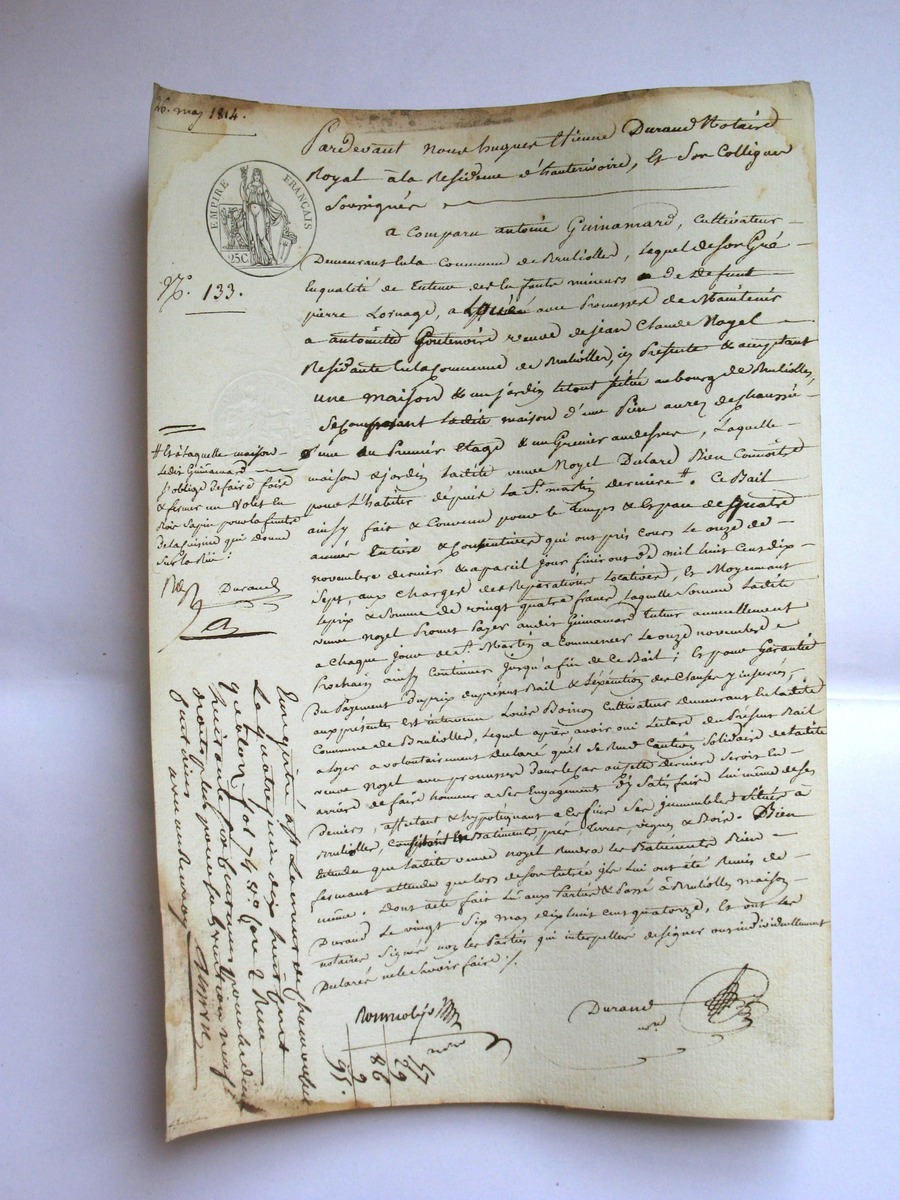 26. may 1814.
EMPIRE FRANÇAIS
25C
N.o 133.
Pardevant nous hugues Etienne Durand Notaire
Royal à la Residence d'hauterivoire, et Son Collegue
Soussignés
a Comparu antoine Guinamard, cultivateur
Demeurant en la Commune de Brulliolles, lequel de son Gré
En qualité de tuteur des enfants mineurs de Defunt
pierre Lornage, a Loué avec Promesse de Maintenir
a antoinette Goutenoire veuve de jean Claude Noyel
Residante en la Commune de Brulliolles, icy Presente & acceptant
une maison & un jardin le tout situé au bourg de Brulliolles,
Se Composant laditte maison d'une Piece au rez de chaussée
d'une au Premier Etage & un Grenier audessus, Laquelle
maison & jardin laditte veuve Noyel Declare Bien Connoitre
pour L'habiter depuis la St. martin derniere #. Ce Bail
ainsy fait & Convenu pour le temps & Espace de quatre
années Entieres & Consecutives qui ont pris Cours le onze de
novembre dernier & a pareil jour finiront de mil huit cent dix
Sept, aux Charges des Reparations Locatives, Et Moyennant
le prix & Somme de vingt quatre francs Laquelle Somme laditte
veuve Noyel Promet Payer audit Guinamard tuteur annuellement
a Chaque jour de St. Martin a Commencer Le onze novembre
Prochain ainsy Continuer jusqu'a fin de Ce Bail; Et pour Garantie
Du Payement du prix du present Bail & L'execution des Clauses y inserées,
aux presentes Est intervenu Louis Boinon Cultivateur demeurant en laditte
Commune de Brulliolles, Lequel après avoir oui Lecture du Present Bail
a Loyer a volontairement declaré qu'il Se Rend Caution Solidaire de laditte
veuve Noyel avec promesse dans le cas ou cette derniere Seroit En
arriere de faire honneur a Ses Engagements d'y Satisfaire lui même de ses
Deniers, affectant & hypotéquant a Ce fin ses immeubles situés à
Brulliolles, Consistant En Batiments, prés, terres, vignes & Bois. Bien
Entendu que laditte veuve Noyel Rendra les Batiments Bien
fermant attendu que lors de son Entrée ils lui ont été Remis de
même. Dont acte fait Lu aux Parties & Passé à Brulliolles maison
Durand Le vingt Six may dix huit cent quatorze, Et ont les
notaires Signé non les Parties qui interpellés de signer ont individuellement
Declaré ne le Savoir faire ./.
# Et à laquelle maison
ledit Guinamard
S'oblige de faire faire
& fermer un volet en
Bois Sapin pour la fenêtre
de la cuisine qui donne
Sur la Rue.
Durand
Enregistré à St Laurent de chamousset
Le quatre juin dix huit cent
quatorze fol 74 Ro Case 2 Reçu
Durand
nre
57
29
86
9
95.